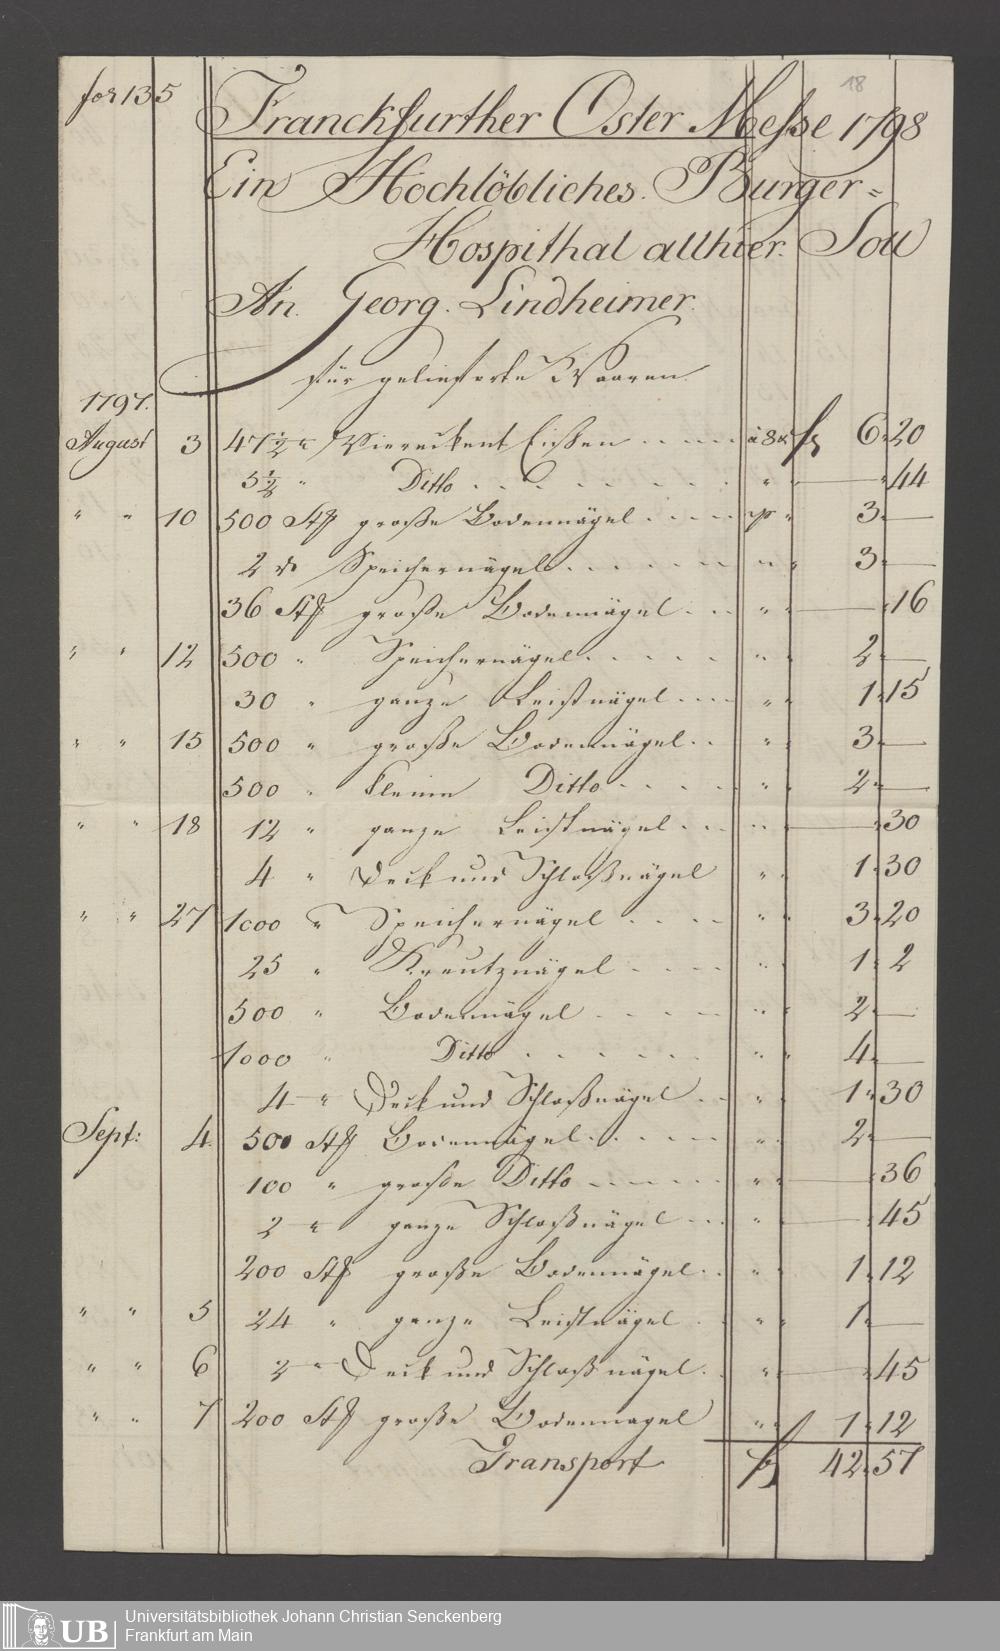 fol 135
18
Franckfurther Oster Messe 1798
Ein Hochlöbliches Burger=
Hospithal allhier. Soll
An. Georg. Lindheimer.
für gelieferte Waaren
1797.
August 3 47 1/2 ℔ Viereckent Eißen à 8 x f 6 20
5 1/2 " Ditto " 44
" " 10 500 Stk große Bodennägel " 3 —
2 ℔ Speichernägel " 3 —
36 Stk große Bodennägel " 16
" " 12 500 " Speichernägel " 2 —
30 " ganze Leistnägel " 1 15
" " 15 500 " große Bodennägel " 3 —
500 " kleine Ditto " 2 —
" " 18 12 " ganze Leistnägel " 30
4 " Deck und Schloßnägel " 1 30
" " 27 1000 " Speichernägel " 3 20
25 " Kreutznägel " 1 2
500 " Bodennägel " 2 —
1000 " Ditto " 4 —
4 " Deck und Schloßnägel " 1 30
Sept: 4 500 Stk Bodennägel " 2 —
100 " große Ditto " 36
2 " ganze Schloßnägel " 45
200 Stk große Bodennägel " 1 12
" " 5 24 " ganze Leistnägel " 1 —
" " 6 2 " Deck und Schloßnägel " 45
" " 7 200 Stk große Bodennagel " 1 12
Transport f 42 57
UB
Universitätsbibliothek Johann Christian Senckenberg
Frankfurt am Main